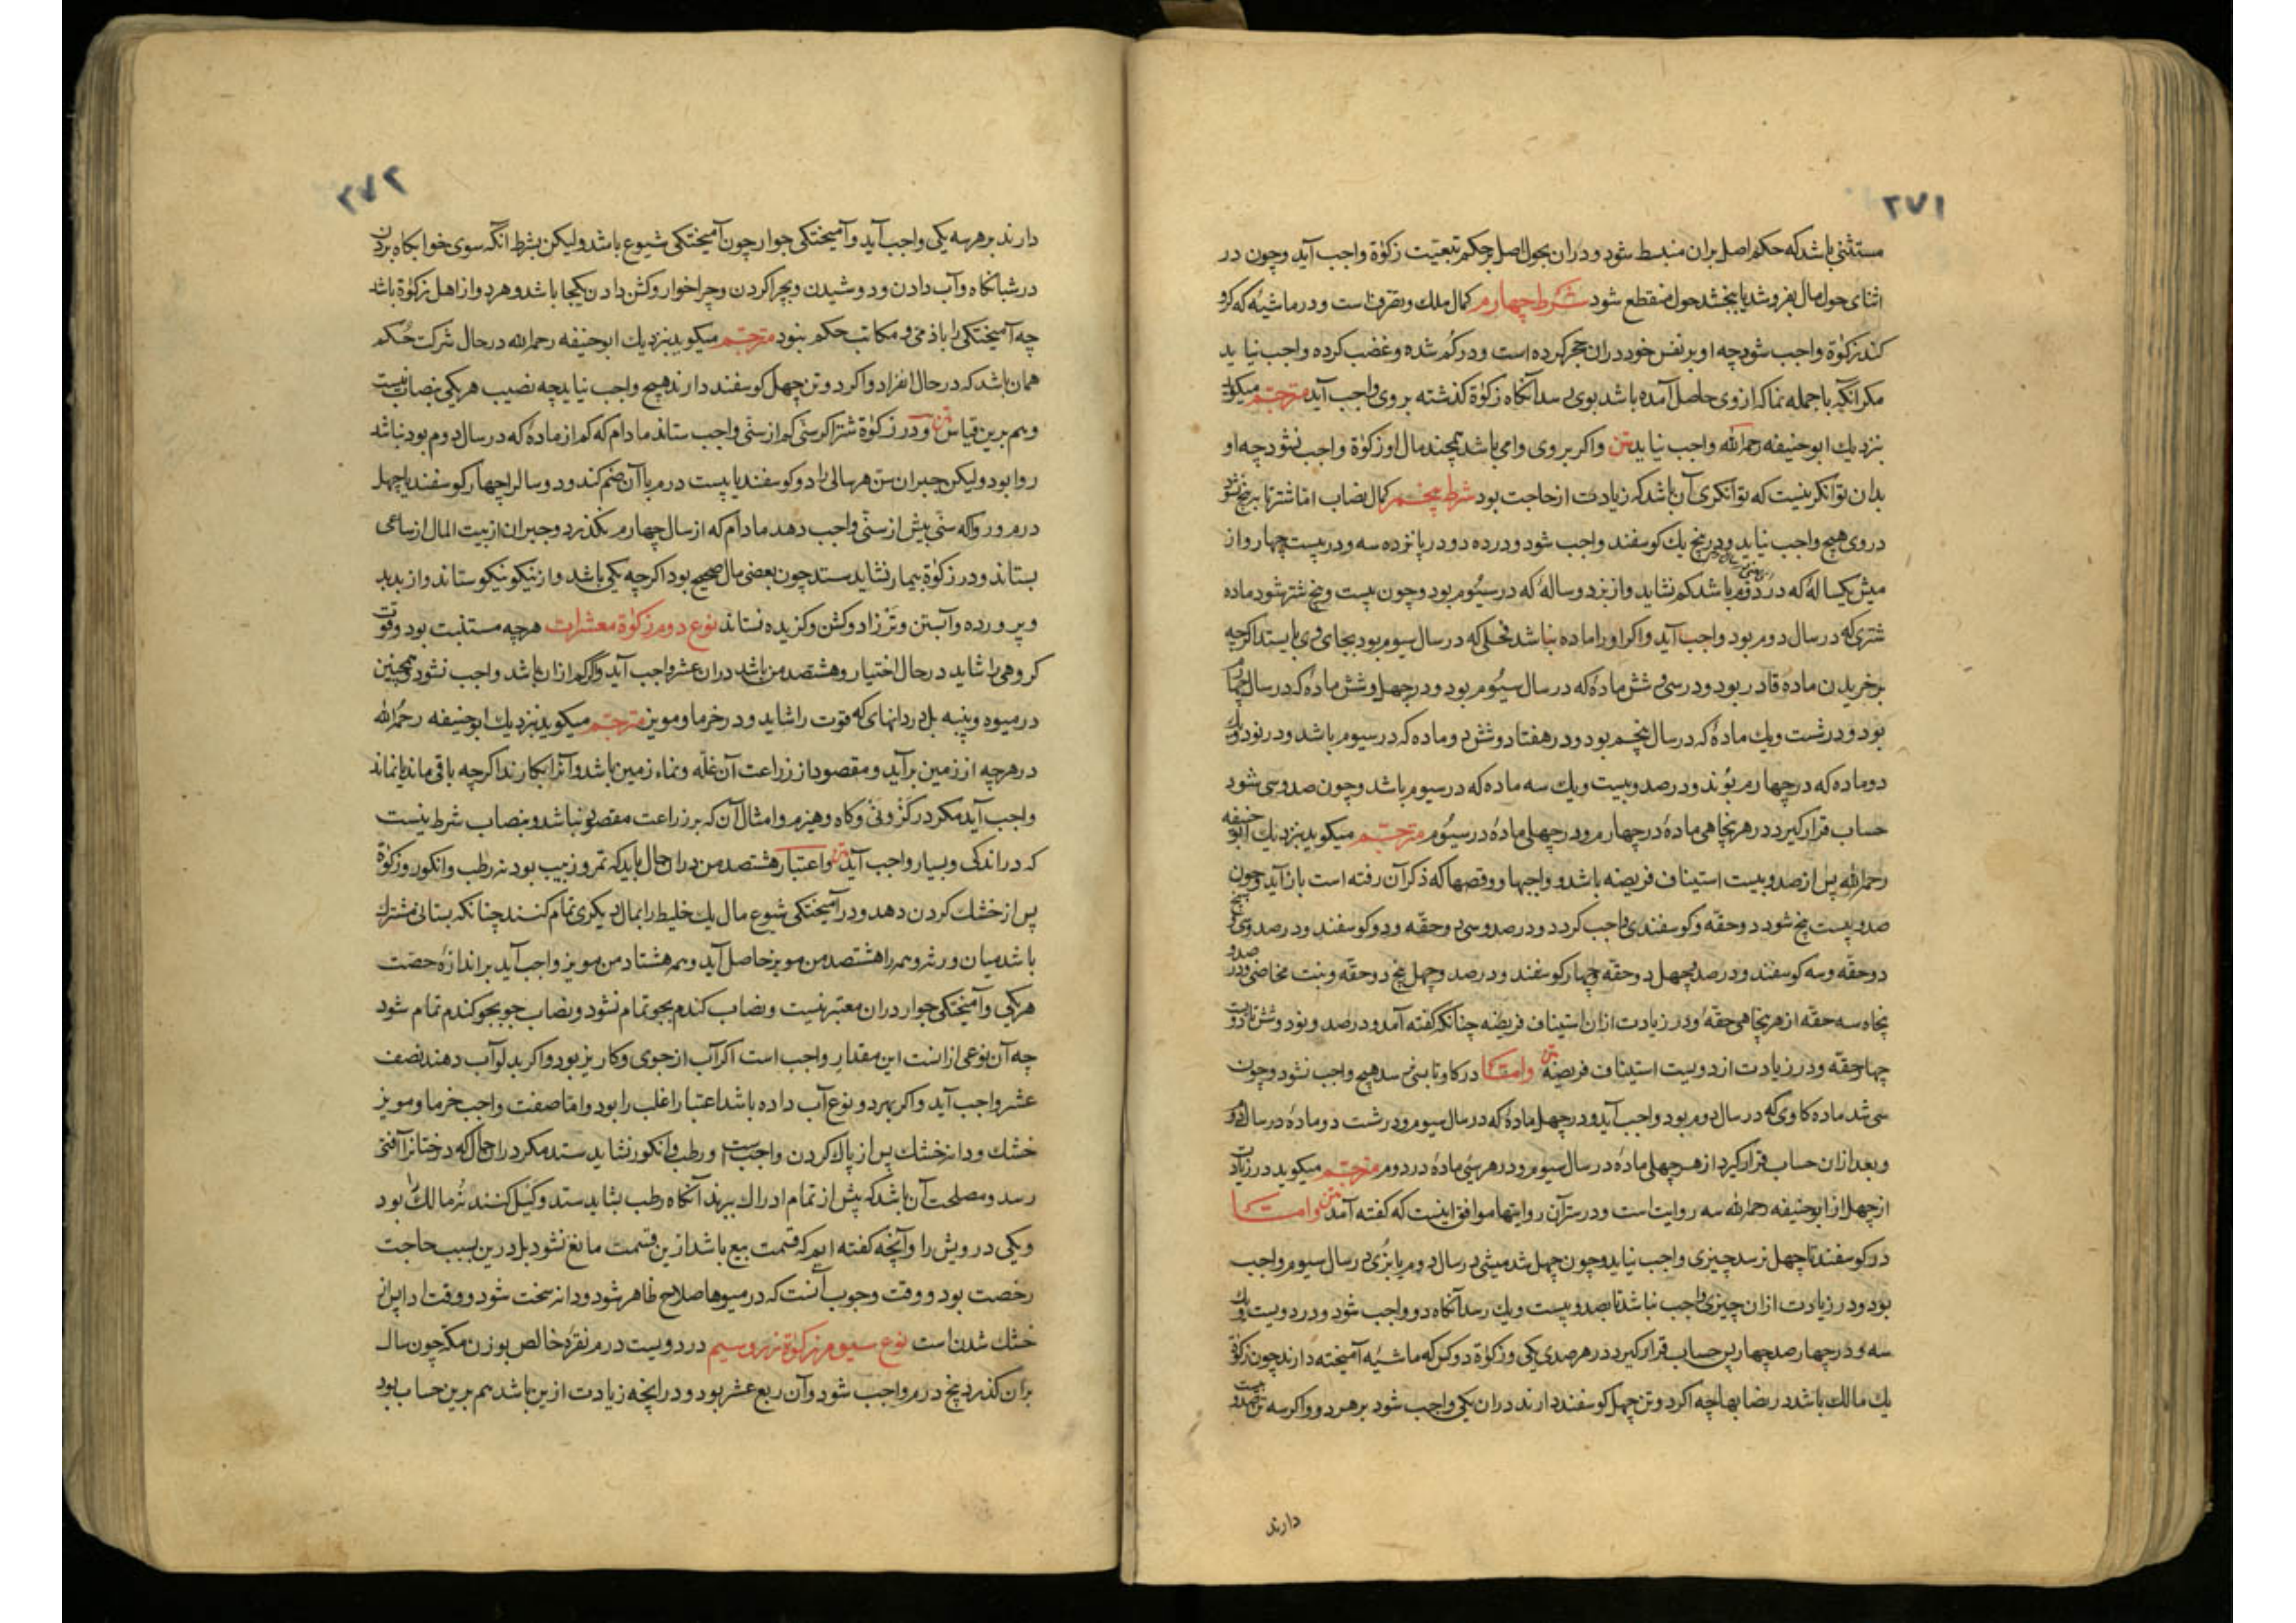 ۲۷۱
مستثنی باشد که حکم اصل بران منبسط شود و دران بحول اصل بر حکم تبعیّت زکوٰة واجب آید وچون در
اثنای حول مال بفروشد یا ببخشد حول منقطع شود شرط چهارم کمال ملک و تصرف است و در ماشیهٔ که کرو
کند زکوٰة واجب شود چه او بر نفس خود دران حجر کرده است و در کم شده و غضب کرده واجب نیاید
مکر آنگه باجمله نما که از وی حاصل آمده باشد بوی رسد آنکاه زکوٰة کذشته بر وی واجب آید مترجم میکوید
بنزدیك ابوحنیفه رحمه الله واجب نیاید متن واکر بر وی وامی باشد همچند مال او زکوٰة واجب نشود چه او
بدان توانکر نیست که توانکری آن باشد که زیادت از حاجت بود شرط پنجم کمال نصاب اما شتر تا به پنج نشود
در وی هیچ واجب نیاید ودر پنج یك کوسفند واجب شود ودر ده دو در پانزده سه ودر بیست چهار واز
میش یکساله که در دوم باشد کم نشاید واز بز دو ساله که در سیُوم بود وچون بیست و پنج شتر شود ماده
شتری که در سال دوم بود واجب آید واکر او را ماده نباشد فحلی که در سال سیوم بود بجای وی بایستد اکرچه
بر خریدن ماده قادر بود ودر سی و شش مادهٔ که در سال سیُوم بود ودر چهل وشش مادهٔ که در سال چهارم
بود ودر شست ویك مادهٔ که در سال پنجم بود ودر هفتاد وشش دو ماده که در سیوم باشد ودر نود ویك
دو ماده که در چهارم بوُند ودر صد وبیست ویك سه ماده که در سیوم باشد وچون صد وسی شود
حساب قرار کیرد در هر پنجاهی مادهٔ در چهارم ودر چهلی مادهٔ در سیُوم مترجم میکوید بنزدیك ابو حنیفه
رحمه الله پس از صد وبیست استیناف فریضه باشد و واجبها ووقصها که ذکر آن رفته است باز آید وچون
صد وبیست پنج شود دو حقّه وکوسفندی واجب کردد ودر صد وسی دو حقّه ودو کوسفند ودر صد وسی و پنج
دو حقّه وسه کوسفند ودر صد وچهل دو حقّه وچهار کوسفند ودر صد وچهل پنج دو حقّه وبنت مخاضی ودر صد و
پنجاه سه حقّه از هر پنجاهی حقهٔ ودر زیادت ازان استیناف فریضه چنانکه کفته آمد ودر صد ونود وشش تا دویست
چهار حقّه ودر زیادت از دویست استیناف فریضه متن وامّا در کاو تا بسی نرسد هیچ واجب نشود وچون
سی شد ماده کاوی که در سال دوم بود واجب آید ودر چهل مادهٔ که در سال سیوم ودر شست دو مادهٔ در سال دوم
وبعد ازان حساب قرار کیرد از هر چهلی مادهٔ در سال سیوم ودر هر سئی مادهٔ در دوم مترجم میکوید در زیادت
از چهل از ابوحنیفه رحمه الله سه روایت است ودرستر آن روایتها موافق اینست که کفته آمد متن وامّا
در کوسفند تا چهل نرسد چیزی واجب نیاید وچون چهل شد میشی در سال دوم یا بزُی در سال سیوم واجب
بود ودر زیادت ازان چیزی واجب نباشد تا بصد وبیست ویك رسد آنکاه دو واجب شود ودر دویست ویك
سه ودر چهار صد چهار پس حساب قرار کیرد در هر صدی یکی وزکوٰة دو کس که ماشیه آمیخته دارند چون زکوٰة
یك مالك باشد در نصابها چه اکر دو تن چهل کوسفند دارند دران یکی واجب شود بر هر دو واکر سه تن صد و بیست
دارند
۲۷۲
دارند بر هر سه یکی واجب آید وآمیختکی جوار چون آمیختکی شیوع باشد ولیکن بشرط آنگه سوی خوابکاه بردن
در شبانکاه وآب دادن ودوشیدن وبچرا کردن وچراخوار وکشن دادن یکجا باشد وهر دو از اهل زکوٰة باشد
چه آمیختکی را با ذمی و مکاتب حکم نبود مترجم میکوید بنزدیك ابوحنیفه رحمه الله در حال شرکت حُکم
همان باشد که در حال انفراد واکر دو تن چهل کوسفند دارند هیچ واجب نیاید چه نصیب هر یکی نصاب نیست
وهم برین قیاس متن ودر زکوٰة شتر اکر سنّی کم از سنّی واجب ستاند مادام که کم از مادهٔ که در سال دوم بود نباشد
روا بود ولیکن جبران سنّ هر سالی را دو کوسفند یا بیست درم با آن ضم کند ودو سال را چهار کوسفند یا چهل
درم ورواکه سنّی بیش از سنّی واجب دهد مادام که از سال چهارم بکذرد وجبران از بیت المال از ساعی
بستاند ودر زکوٰة بیمار نشاید ستد چون بعضی مال صحیح بود اکرچه یکی باشد واز نیکو نیکو ستاند واز بد بد
وپرورده وآبستن ونَر زاد وکشن وکزیده نستاند نوع دوم زکوٰة معشرات هرچه مستنبت بود وقوت
کروهی را شاید در حال اختیار وهشتصد من باشد دران عشر واجب آید واگر کم ازان باشد واجب نشود وهمچنین
در میوه وپنبه بل در دانهای که قوت را شاید ودر خرما ومویز مترجم میکوید بنزدیك ابوحنیفه رحمه الله
در هرچه از زمین برآید ومقصود از زراعت آن غلّه ونماء زمین باشد وآنرا بکارند اکرچه باقی ماند یا نماند
واجب آید مکر در کز ونی وکاه وهیزم وامثال آن که بر زراعت مقصود نباشد ونصاب شرط نیست
که در اندکی وبسیار واجب آید متن واعتبار هشتصد من دران حال باید که تمر وزبیب بود نه رطب وانکور وزکوٰة
پس از خشك کردن دهد ودر آمیختکی شیوع مال یك خلیط را بمال دیکری تمام کنند چنانکه بستانی مشترك
باشد میان ورثه وهمه را هشتصد من مویز حاصل آید وهمه هشتاد من مویز واجب آید بر اندازهٔ حصّت
هر یکی وآمیختکی جوار دران معتبر نیست ونصاب کندم بجو تمام نشود ونصاب جو بجو کندم تمام شود
چه آن نوعی ازانست این مقدار واجب است اکر آب از جوی وکاریز بود واکر بدلو آب دهند نصف
عشر واجب آید واکر بهر دو نوع آب داده باشد اعتبار اغلب را بود وامّا صفت واجب خرما ومویز
خشك ودانه خشك پس از پاك کردن واجب است ورطب وانکور نشاید ستد مکر دران حال که درختانرا آفتی
رسد ومصلحت آن باشد که پیش از تمام ادراك ببرند آنکاه رطب بشاید ستد وکَیل کنند نُه مالك را بود
ویکی درویش را وآنچه کفته ایم که قسمت بیع باشد ازین قسمت مانع نشود بل درین بسبب حاجت
رخصت بود ووقت وجوب آنست که در میوها صلاح ظاهر شود ودانه سخت شود ووقت ادا پس از
خشك شدن است نوع سیوم زکوٰة زر وسیم در دویست درم نقرهٔ خالص بوزن مکّه چون سال
بران کذرد پنج درم واجب شود وآن ربع عشر بود ودر اینچه زیادت ازین باشد هم برین حساب بود